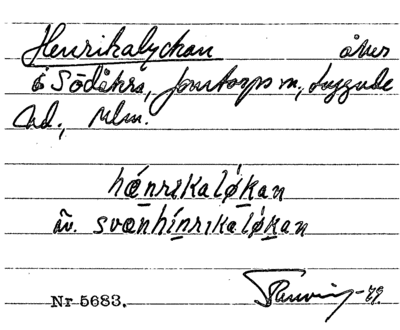 Henrikalyckan åker
å Södåkra, Jonstorps sn, Luggude
hd., Mlm.
hǽnrɩkalǿkan
äv. svænhínrɩkalǿkan
Nr 5683. -79.